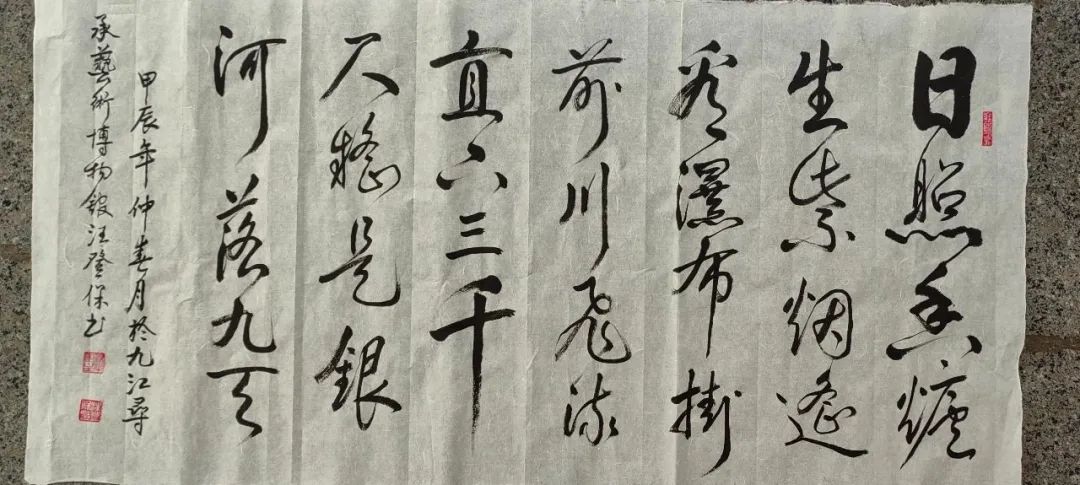 日照香爐
生紫烟遥
看瀑布掛
前川飛流
直下三千
尺疑是銀
河落九天
甲辰年仲春月於九江尋
承藝術博物館汪登保書